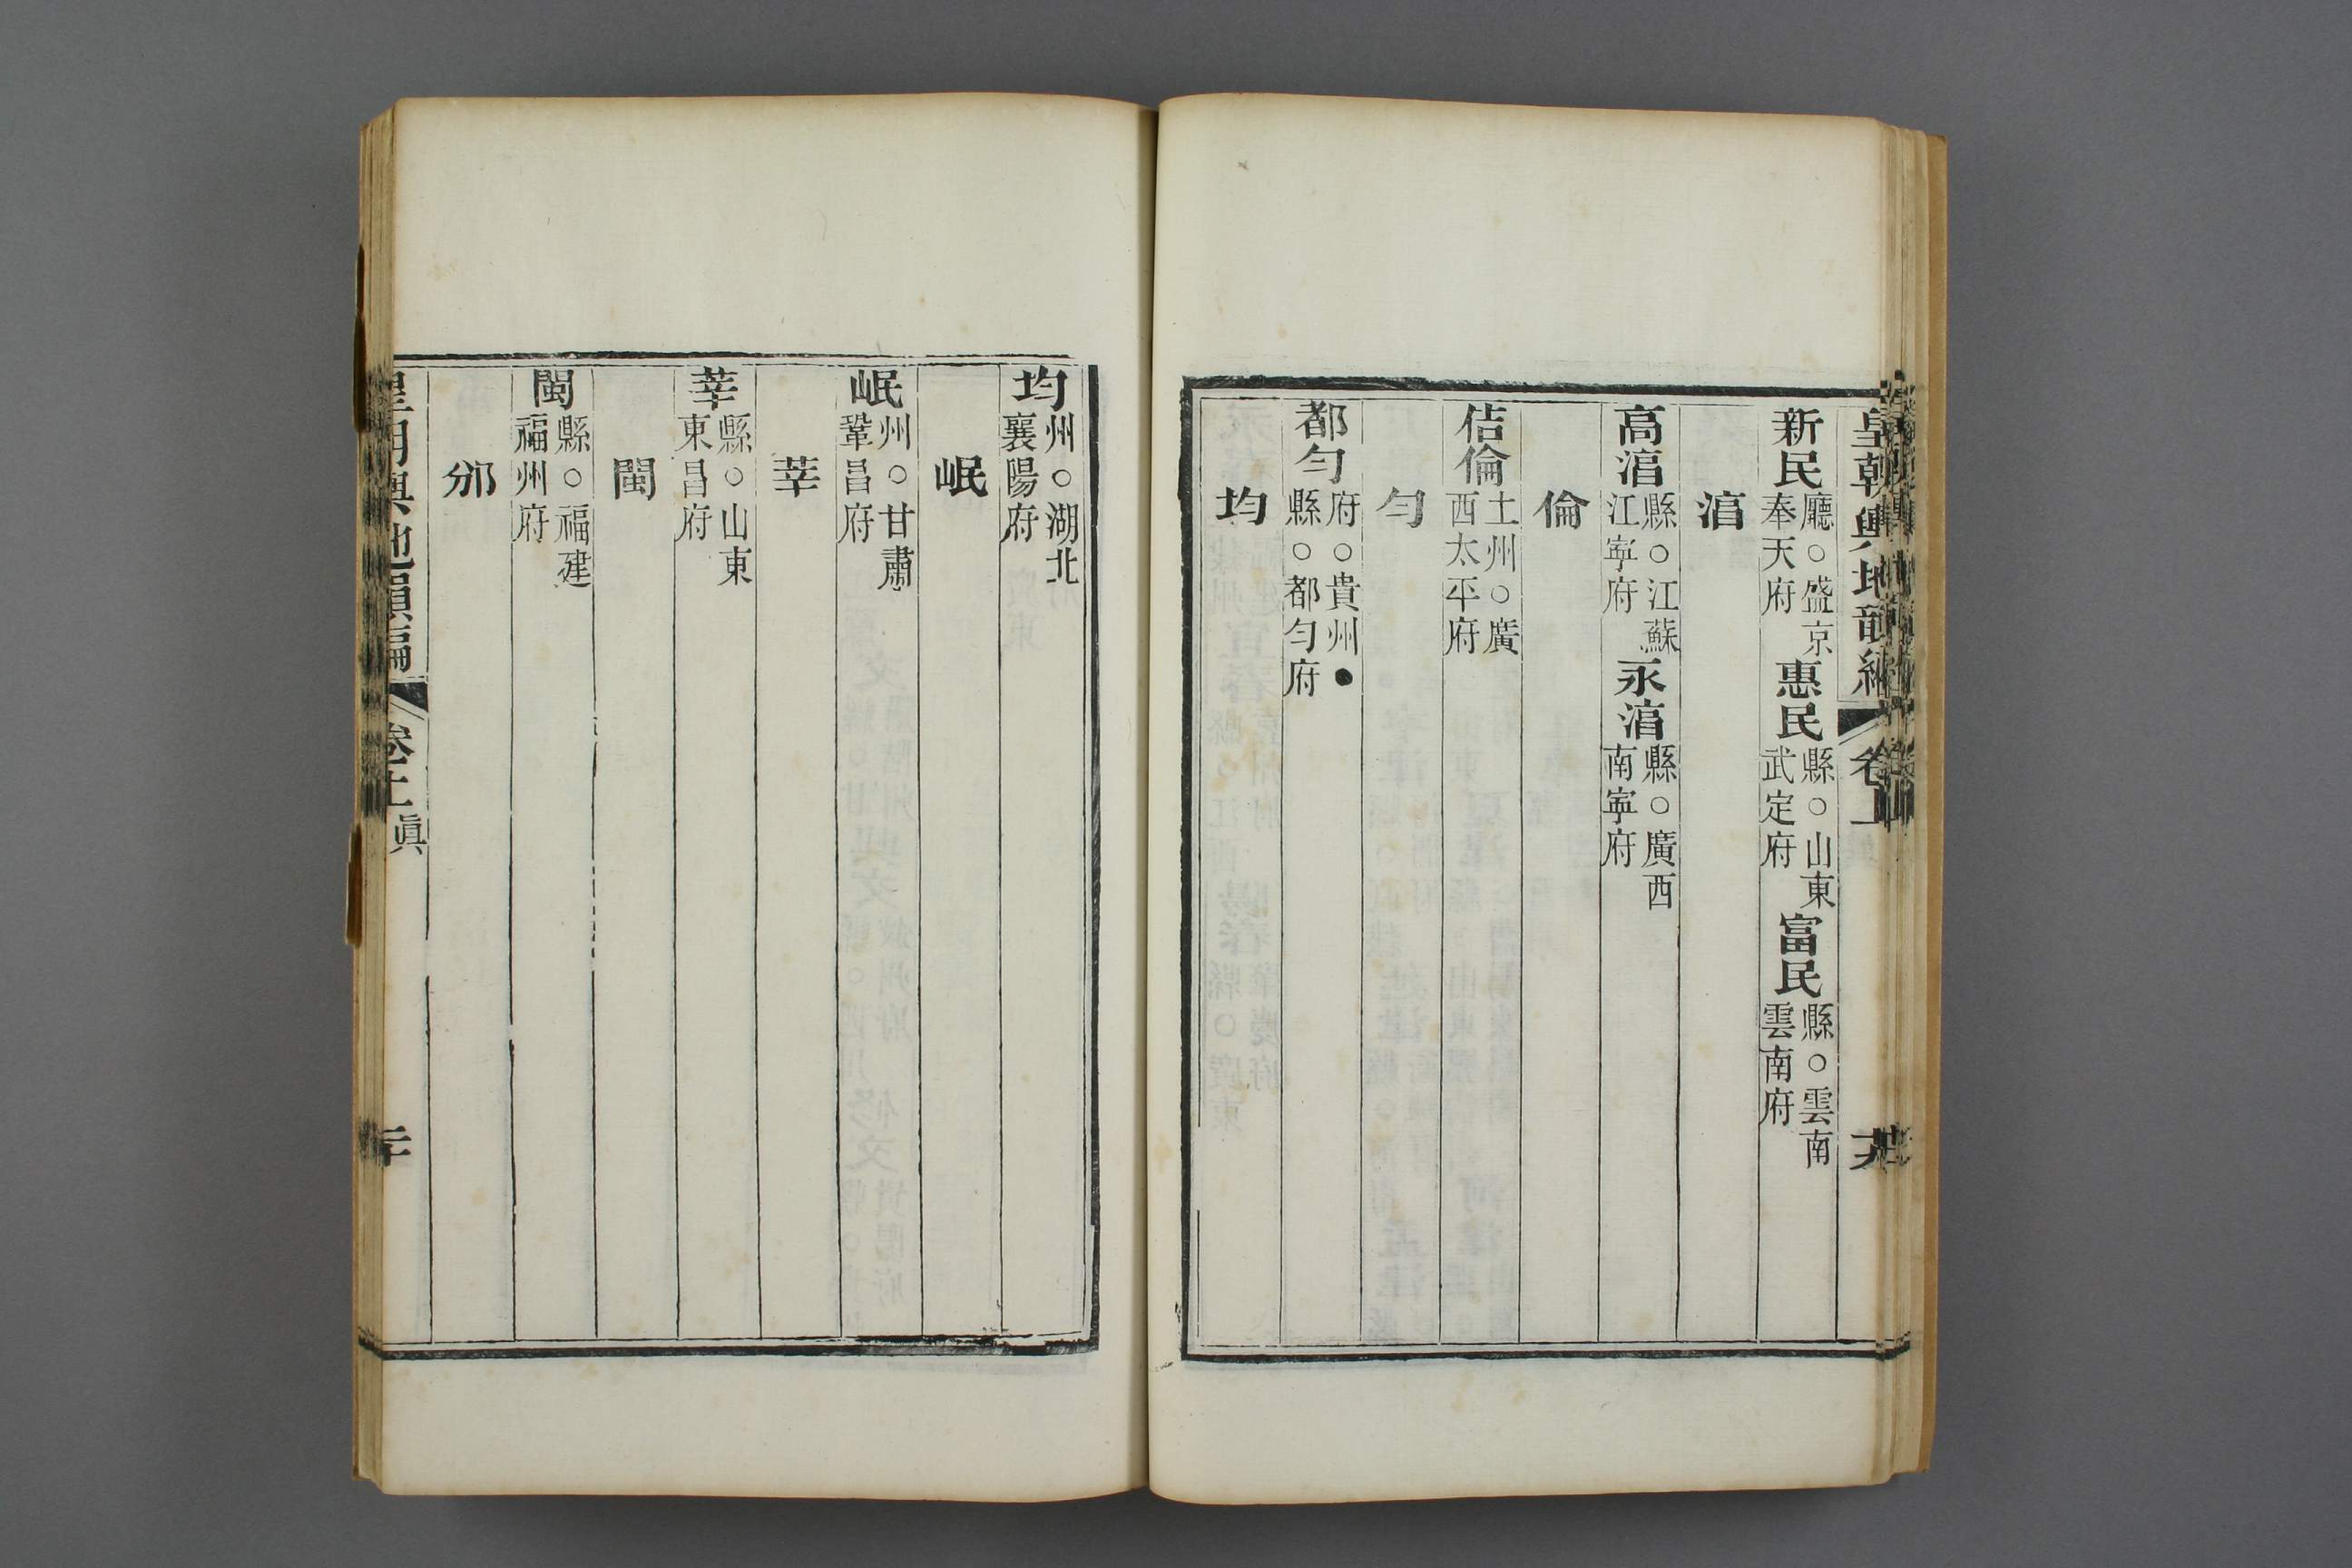 皇朝輿地韻編 卷上
新民廳○盛京奉天府惠民縣○山東武定府富民縣○雲南雲南府
湻
高湻縣○江蘇江寧府永湻縣○廣西南寧府
倫
佶倫土州○廣西太平府
勻
都勻府○貴州●縣○都勻府
均
均州○湖北襄陽府
岷
岷州○甘肅鞏昌府
莘
莘縣○山東東昌府
閩
閩縣○福建福州府
邠
皇朝輿地韻編 卷上 眞 二十